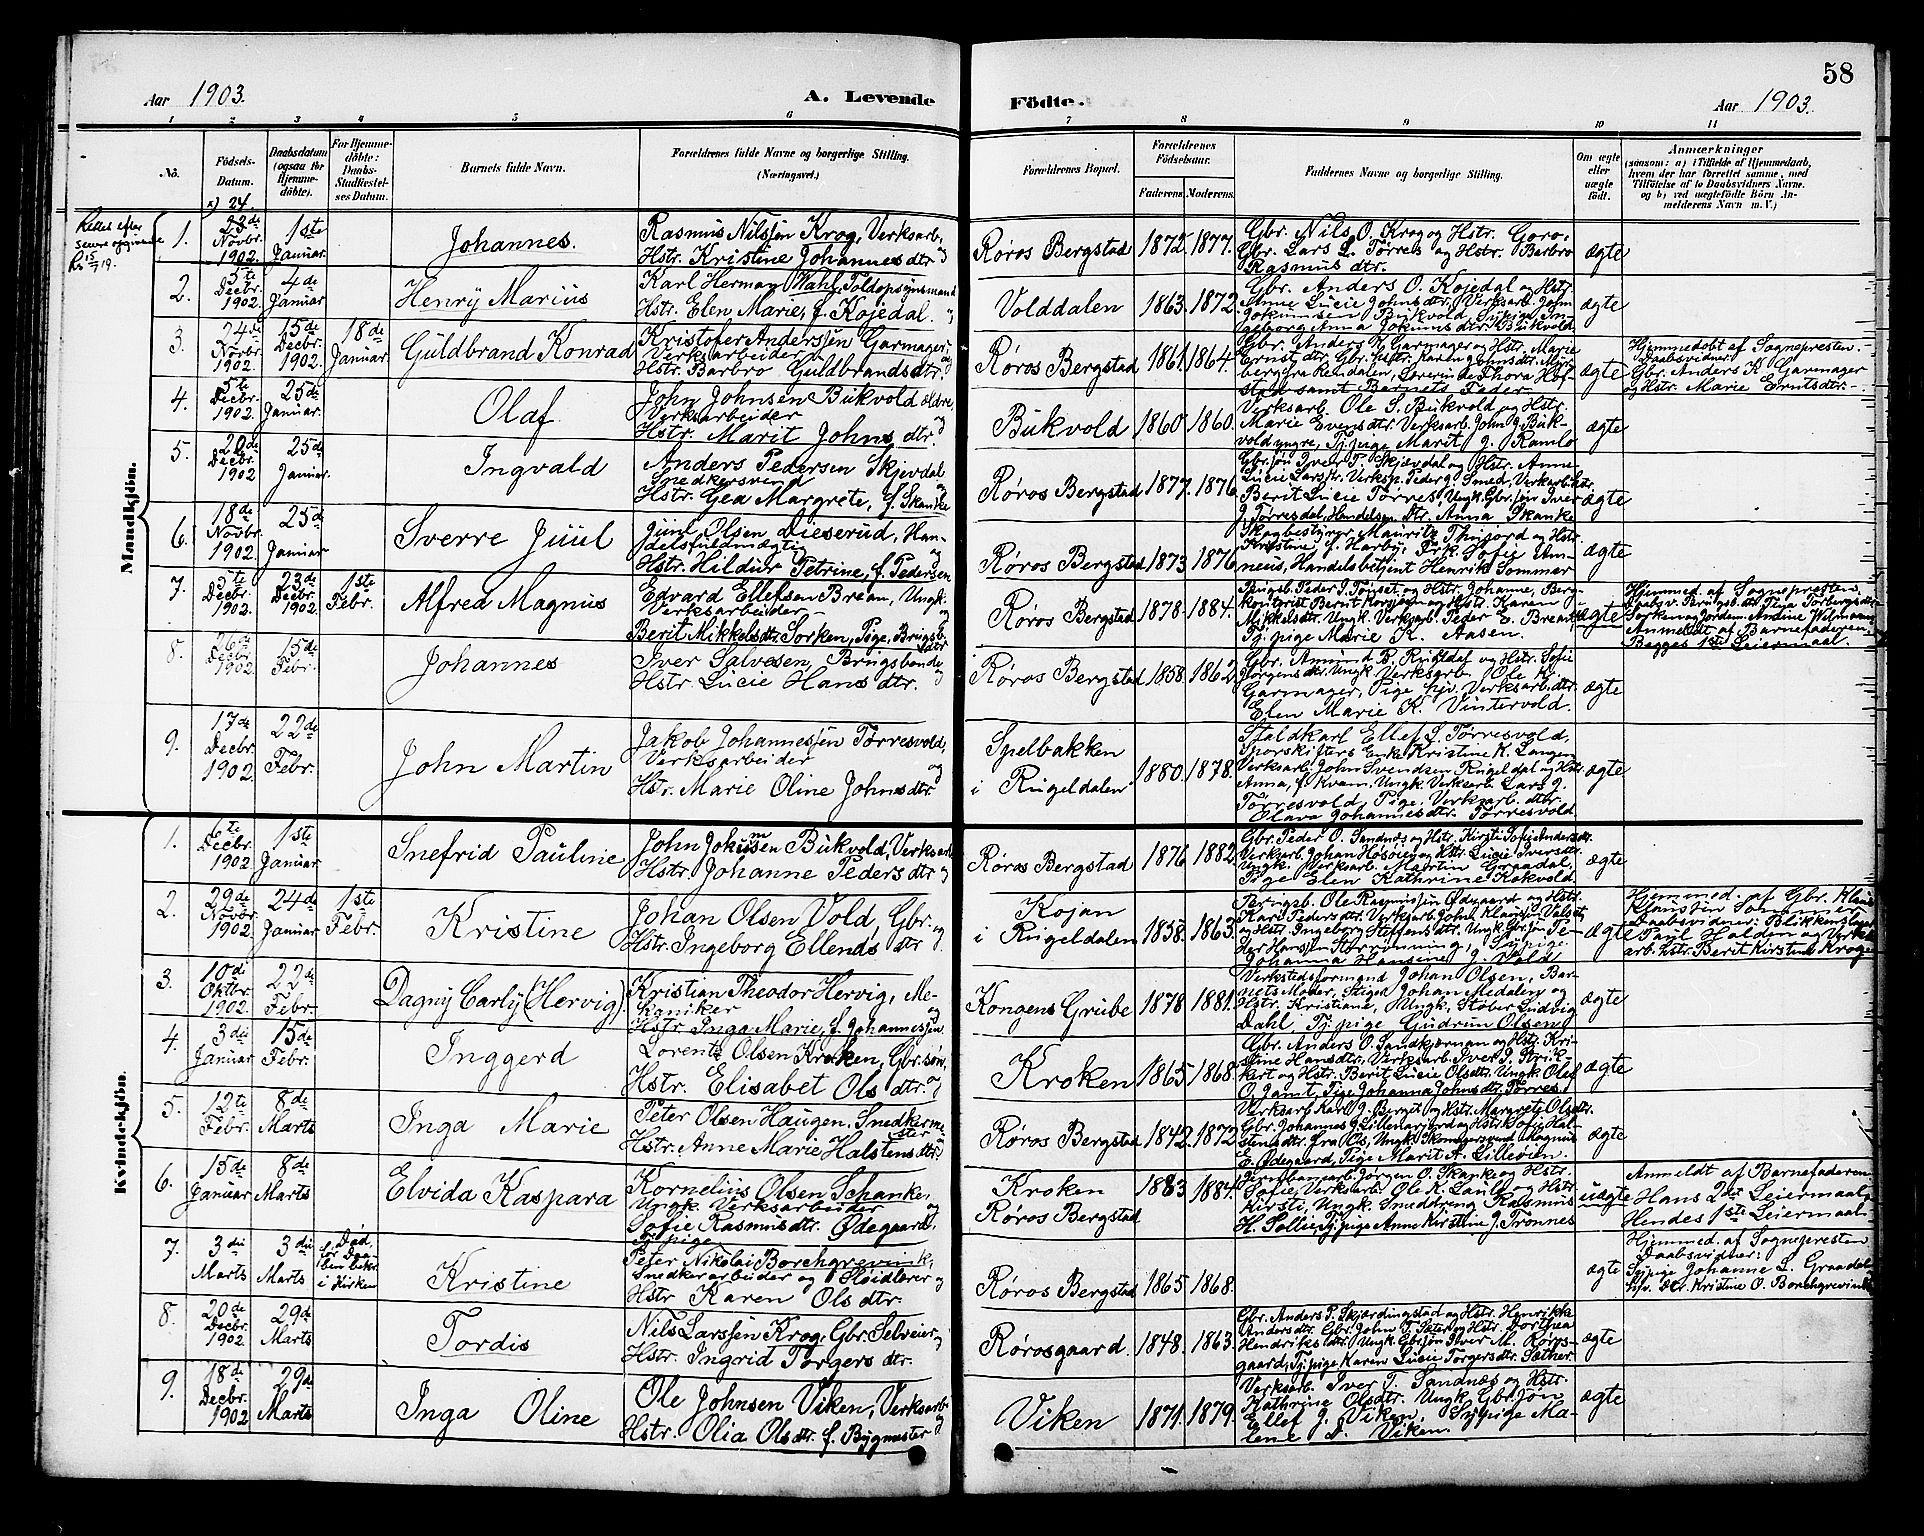 58
Aar 1903.
A. Levende
Födte.
Aar 1903.
1 2 3 4 5 6 7 8 9 10 11
No.
Födsels-
Datum.
Daabsdatum
(ogsaa for
Hjemme-
döbte).
For Hjemme-
döbte:
Daabs-
Stadfæstel-
ses Datum.
Barnets fulde Navn.
Forældrenes fulde Navne og borgerlige Stilling.
(Næringsvei.)
Forældrenes Bopæl.
Forældrenes
Födselsaar.
Faderens. Moderens.
Faddernes Navne og borgerlige Stilling.
Om ægte
eller
uægte
født.
Anmærkninger
(saasom: a) i Tilfælde af Hjemmedaab,
hvem der har forrettet samme, med
Tilföielse af to Daabsvidners Navne.
og b) ved uægtefödte Börn An-
melderens Navn m. V.)
Rettet efter
senere opgivende
15/7 19.
x) 24.
Mandkjön.
1.
23de
Novbr.
1902.
1ste
Januar.
Johannes.
Rasmus Nilssen Krog, Verksarb.
og
Hstr. Kristine Johannesdtr.
Røros Bergstad
1872. 1877.
Gbr. Nils O. Krog og Hstr. Goro,
Gbr. Lars L. Tørres og Hstr. Barbro
Rasmusdtr.
ægte
2.
5te
Decbr.
1902
4de
Januar
Henry Marius
Karl Herman Wahl, Toldopsynsmand
og
Hstr. Elen Marie, f. Kojedal.
Volddalen
1863. 1872.
Gbr. Anders O. Kojedal og Hstr.
Anne Lucie Johnsdtr. Verksarb. John
Jokumsen Bukvold, Sypige In-
geborg Anna Jokumsdtr. Bukvold
ægte
3.
24de
Novbr.
1902.
15de
Decbr.
1902.
18de
Januar.
Guldbrand Konrad
Kristofer Anderssen Garmager,
Verksarbeider
og
Hstr. Barbro Guldbrandsdtr.
Røros Bergstad
1861. 1864.
Gbr. Anders K. Garmager og Hstr. Marie
Ernstdtr.
samt Barnets Fader
ægte
Hjemmedøbt af Sognepresten.
Daabsvidner:
Gbr. Anders K. Garmager
og Hstr. Marie Erntsdtr.-
4.
5te
Decbr.
1902.
25de
Januar.
Olaf.
John Johnsen Bukvold ældre,
Verksarbeider
og
Hstr. Marit Johnsdtr.
Bukvold
1860. 1860.
Verksarb. Ole S. Bukvold og Hstr.
Marie Evensdtr. Verksarb. John J. Buk-
vold yngre, Tj.pige Marit J. Ramlo
ægte
5.
20de
Decbr.
1902
25de
Januar.
Ingvald
Anders Pedersen Skjevdal
Snedkersvend
og
Hstr. Gea Margrete, f. Skanke
Røros Bergstad
1877. 1876.
Gbr.søn Iver P. Skjævdal og Hstr. Anne
Lucie Larsdtr. Verksp. Peder J. Smed, Verksarb.dtr.
Berit Lucie Tørres, Ungk. Gbr.søn Iver
J. Tørresdal, Handelsm.dtr. Anna Skanke
ægte
6.
18de
Novbr.
1902.
25de
Januar
Sverre Juul
Juul Olsen Dieserud, Han-
delsfuldmægtig
og
Hstr. Hildur Petrine, f. Pedersen
Røros Bergstad
1873 1876
Skogbestyrer Mauritz Thinjord og Hstr.
Kristine, f. Harby, Frk. Sofie Um-
neus, Handelsbetjent Henrik Sommer
ægte
7.
5te
Decbr.
1902.
23de
Decbr.
1902
1ste
Febr.
Alfred Magnus
Edvard Ellefsen Brean, Ungk.
Verksarbeider
og
Berit Mikkelsdtr. Sorken, Pige, Brugsb.
datr.
Røros Bergstad
1878. 1884.
Brugsb. Peder J. Tønset og Hstr. Johanne, Berg-
kontorist Bernt Korssjøen og Hstr. Karen
Mikkelsdtr. Ungk. Verksarb. Peder E. Brean,
Tj.pige Marie K. Aasen.
uægte
Hjemmed. af Sognepresten.
Daabsv. Brugsb.dtr. Ilye Torbergsdtr.
Sorken og Jordem. Andine Wilmann
Anmeldt af Barnefaderen.
Begges 1ste Leiermaal.
8.
26de
Decbr.
1902
15de
Febr.
Johannes
Iver Salvesen, Brugsbonde
og
Hstr. Lucie Hansdtr.
Røros Bergstad
1858. 1862
Gbr. Amund B. Rugldal og Hstr. Sofie
Jørgensdtr. Ungk. Verksarb. Ole K.
Garmager, Pige hjv. Verksarb.dtr.
Elen Marie K. Vintervold.
ægte
9.
17de
Decbr.
1902
22de
Febr.
John Martin
Jakob Johannessen Tørresvold,
Verksarbeider
og
Hstr. Marie Oline Johnsdtr.
Spelbakken
i Rugeldalen
1880. 1878.
Staldkarl Ellef L. Tørresvold,
Sporskifters Enke Kristine K. Langen
Verksarb. John Svendsen Rugeldal og Hstr.
Anna, f. Kvam, Ungk. Verksarb. Lars J.
Tørresvold, Pige, Verksarb.dtr.
Olava Johannesdtr. Tørresvold
ægte
Kvindekjön.
1.
6te
Decbr.
1902
1ste
Januar
Snefrid Pauline
John Jokumsen Bukvold, Verksarb.
og
Hstr. Johanne Pedersdtr.
Røros Bergstad
1876 1882
Gbr. Peder O. Sandnæs og Hstr. Kirsti Sofie Andersdtr.
Verksarb. Johan Hosøien og Hstr. Lucie Iversdtr.
Ungk. Verksarb. Martin Graadal,
Pige Elen Kathrine Kokvold
ægte
2.
29de
Novbr.
1902.
24de
Januar
1ste
Febr.
Kristine
Johan Olsen Vold, Gbr.
og
Hstr. Ingeborg Ellendsdtr.
Kojan
i Rugeldalen
1858. 1863.
Brugsb. Ole Rasmussen Ødegaard og Hstr.
Kari Pedersdtr. Verksarb. John Klausen Valset
og Hstr. Ingeborg Steffensdtr. Ungk. Gbr.søn Pe-
der Hansen Korremming, Sypige
Johanna Hansine J. Vold
ægte
Hjemmed. af Gbr. Klaus
Klaussen Sommer
Daabsvidner: Blikkenslager
Paul Halden og Verks-
arb. Hstr. Berit Kirstine Krog
3.
10de
Oktbr.
1902.
22de
Febr.
Dagny Carly (Hervig)
Kristian Theodor Hervig, Me-
kaniker
og
Hstr. Inga Marie, f. Johannessen
Kongens Grube
1878 1881.
Verkstedsformand Johan Olsen, Bar-
nets Moder, Stiger Johan Medalen og
Hstr. Kristiane, Ungk. Støber Ludvig
Dahl, Tj.pige Gudrun Olsen
ægte
4.
3die
Januar
15de
Febr.
Inggerd
Lorents Olsen Kroken, Gbr.søn,
og
Hstr. Elisabet Olsdtr.
Kroken
1865 1868.
Gbr. Anders O. Sandkjærnan og Hstr. Kri-
stine Hansdtr, Verksarb. Iver P. Krik-
kert og Hstr. Berit Lucie Olsdtr. Ungk. Olef
O. Jamt, Pige Johanna Johnsdtr. Tørres
ægte
5.
12te
Febr.
8de
Marts
Inga Marie
Peter Olsen Haugen, Snedkerme-
ster
og
Hstr. Anne Marie Halstensdtr.
Røros Bergstad
1842. 1872
Verksarb. Karl J. Berget og Hstr. Margrete Olsdtr.
Gbr. Johannes J. Lillenørgard og Hstr. Sofie Hal-
stensdtr. fra Os, Ungk. Skomagersvend Magnus
E. Ødegaard, Pige Marit A. Lilleøien.
ægte
6.
15de
Januar
8de
Marts
Elvida Kaspara
Kornelius Olsen Schanke,
Ungk. Verksarbeider
og
Sofie Rasmusdtr. Ødegaard,
Tj.pige
Kroken
Røros Bergstad
1883 1884.
Jernbanearb. Jørgen O. Skanke og Hstr.
Sofie, Verksarb. Ole K. Lanto og Hstr.
Kirsti, Ungk. Smeddreng Rasmus
H. Sollie, Tj.pige Anne Kirstine J. Trønnes
uægte
Anmeldt af Barnefaderen
Hans 2det Leiermaal,
Hendes 1ste Leiermaal
7.
3die
Marts
3die
Marts
Død
før Daa-
ben bekr.
i Kirken
Kristine
Peter Nikolai Borchgrevink,
Snedkerarbeider og Sløidlærer
og
Hstr. Karen Olsdtr.
Røros Bergstad
1865. 1868.
ægte
Hjemmed. af Sognepresten
Daabsvidner:
Sypige Johanne L. Graadal
Hjv. Dtr. Kristine O. Borchgrevink
8.
20de
Decbr.
1902
29de
Marts
Tordis
Nils Larssen Krog, Gbr. Selveier
og
Hstr. Ingrid Torgersdtr.
Rørosgaard.
1848. 1863.
Gbr. Anders P. Skjærdingstad og Hstr. Henrikke
Andersdtr. Gbr. John T. Sæter og Hstr. Dorthea
Hendriksdtr. Ungk. Gbr.søn Iver M. Røros-
gaard, Tj.pige Karen Lucie Torgersdtr. Sæther
ægte
9.
18de
Decbr.
1902
29de
Marts
Inga Oline
Ole Johnsen Viken, Verksarb.
og
Hstr. Olia Olsdtr. f. Bygmester
Viken
1871. 1879.
Verksarb. Iver T. Sandnæs og Hstr.
Kathrine Olsdtr. Ungk. Gbr.søn
Ellef J. Viken, Sypige Ma-
lene J. Viken.
ægte